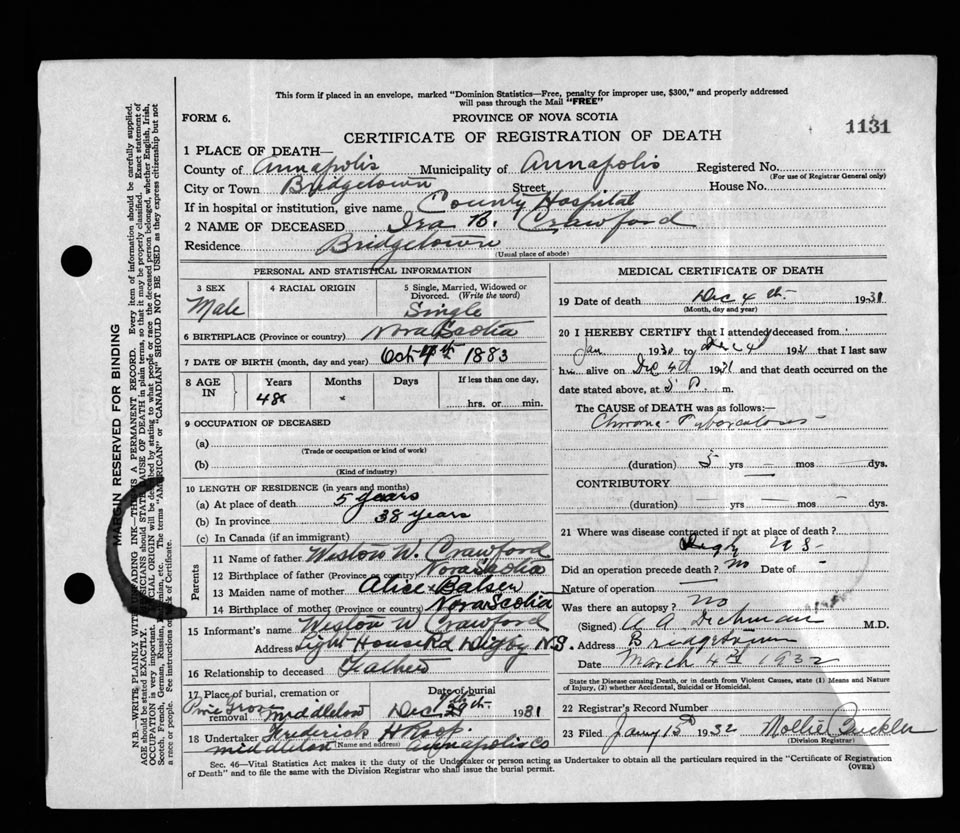 This form if placed in an envelope, marked "Dominion Statistics—Free, penalty for improper use, $300," and properly addressed
will pass through the Mail "FREE"
FORM 6.
PROVINCE OF NOVA SCOTIA
CERTIFICATE OF REGISTRATION OF DEATH
1131
1 PLACE OF DEATH—
County of Annapolis Municipality of Annapolis Registered No.
(For use of Registrar General only)
City or Town Bridgetown Street House No.
If in hospital or institution, give name County Hospital
2 NAME OF DECEASED Ira B. Crawford
Residence Bridgetown
(Usual place of abode)
PERSONAL AND STATISTICAL INFORMATION
3 SEX
Male
4 RACIAL ORIGIN
5 Single, Married, Widowed or
Divorced. (Write the word)
Single
6 BIRTHPLACE (Province or country) Nova Scotia
7 DATE OF BIRTH (month, day and year) Oct 4th 1883
8 AGE
IN
Years
48
Months
Days
If less than one day,
hrs. or min.
9 OCCUPATION OF DECEASED
(a)
(Trade or occupation or kind of work)
(b)
(Kind of industry)
10 LENGTH OF RESIDENCE (in years and months)
(a) At place of death 5 years
(b) In province 38 years
(c) In Canada (if an immigrant)
Parents
11 Name of father Weston W. Crawford
12 Birthplace of father (Province or country) Nova Scotia
13 Maiden name of mother Alice Balser
14 Birthplace of mother (Province or country) Nova Scotia
15 Informant's name Weston W Crawford
Address Light House Rd Digby N.S.
16 Relationship to deceased Father
17 Place of burial, cremation or
removal Pine Grove Middleton
Date of burial
Dec 1931
18 Undertaker Frederick H Roop.
Middleton (Name and address) Annapolis Co
MEDICAL CERTIFICATE OF DEATH
19 Date of death Dec 4th 1931
(Month, day and year)
20 I HEREBY CERTIFY that I attended deceased from
Jan 1930 to Dec 4 1931 that I last saw
him alive on Dec 4 1931 and that death occurred on the
date stated above, at 5 P. m.
The CAUSE of DEATH was as follows:—
Chronic Tuberculosis
(duration) 5 yrs — mos dys.
CONTRIBUTORY
(duration) — yrs — mos — dys.
21 Where was disease contracted if not at place of death?
Digby N S
Did an operation precede death? no Date of —
Nature of operation —
Was there an autopsy? no
(Signed) A A Dechman M.D.
Address Bridgetown
Date March 4th 1932
State the Disease causing Death, or in death from Violent Causes, state (1) Means and Nature
of Injury, (2) whether Accidental, Suicidal or Homicidal.
22 Registrar's Record Number
23 Filed Jany 15 1932 Mollie
(Division Registrar)
Sec. 46—Vital Statistics Act makes it the duty of the Undertaker or person acting as Undertaker to obtain all the particulars required in the "Certificate of Registration
of Death" and to file the same with the Division Registrar who shall issue the burial permit.
(OVER)
MARGIN RESERVED FOR BINDING
N.B.—WRITE PLAINLY WITH UNFADING INK—THIS IS A PERMANENT RECORD. Every item of information should be carefully supplied.
AGE should be stated EXACTLY. PHYSICIANS should STATE CAUSE OF DEATH in plain terms, so that it may be properly classified. Exact statement of
OCCUPATION is very important. RACIAL ORIGIN will be described by stating to what people or race the deceased person belonged, whether English, Irish,
Scotch, French, German, Russian, etc. The terms "AMERICAN" or "CANADIAN" SHOULD NOT BE USED as they express citizenship but not
a race or people. See instructions on back of Certificate.